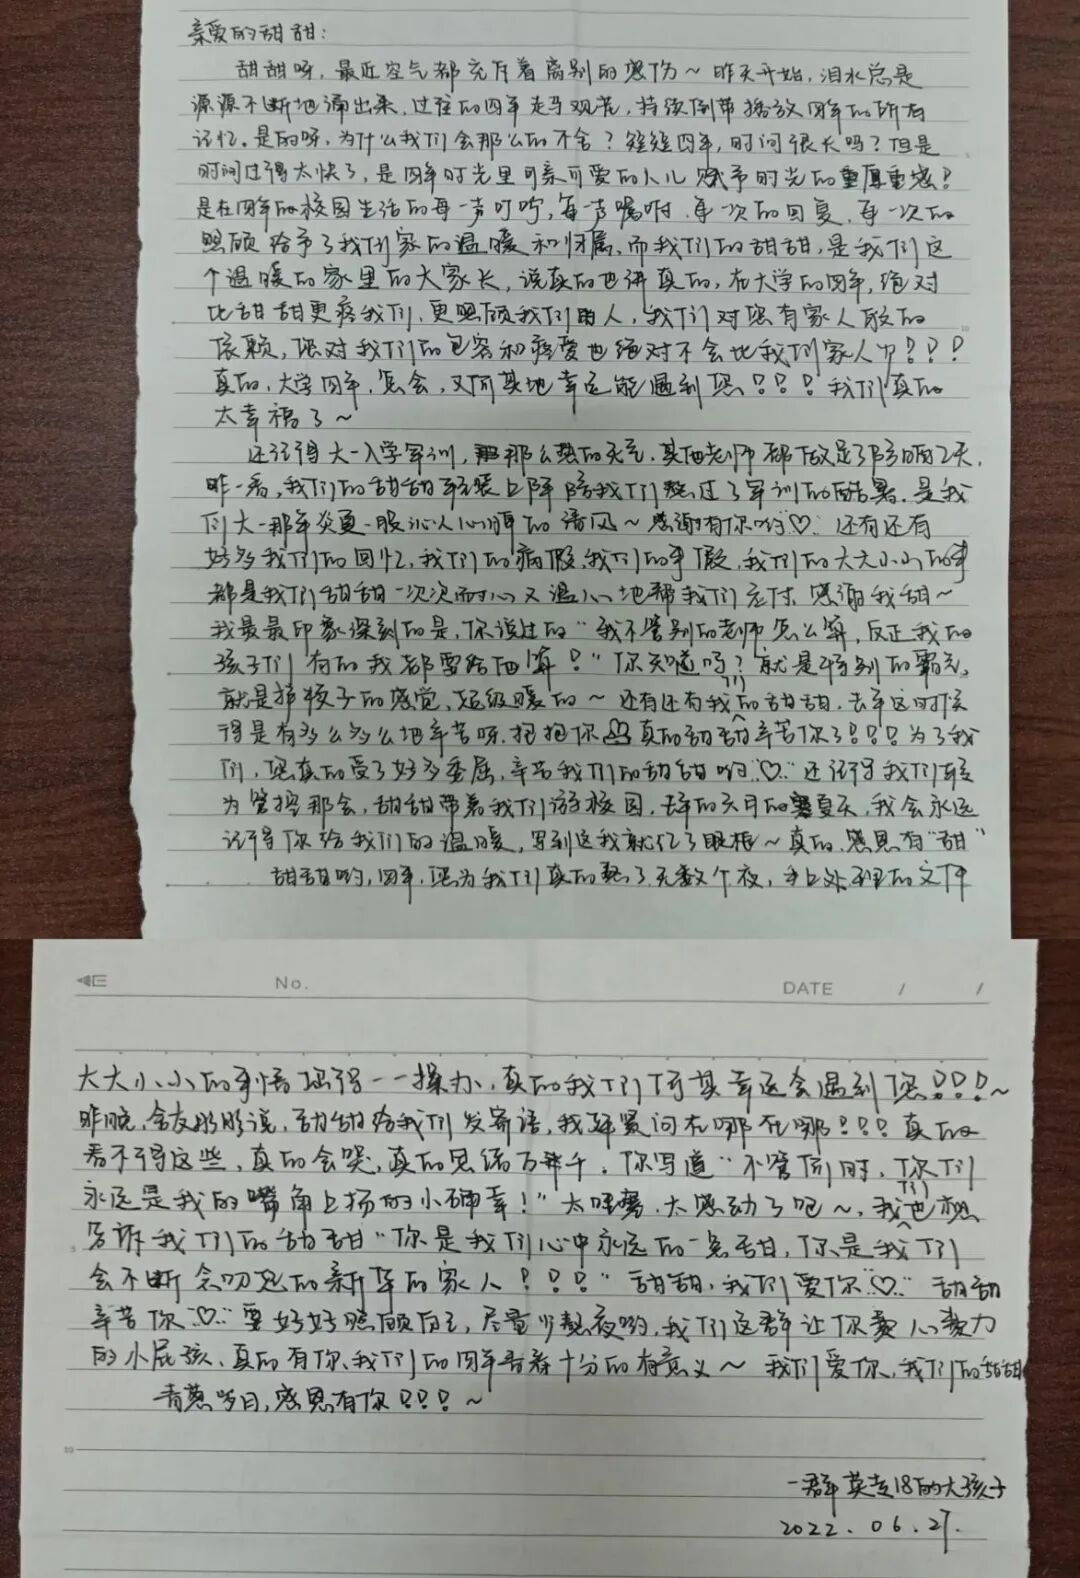 亲爱的甜甜：
甜甜呀，最近空气都充斥着离别的感伤～昨天开始，泪水总是
源源不断地涌出来，过往的四年走马观花，持续倒带播放四年的所有
记忆。是的呀，为什么我们会那么的不舍？短短四年，时间很长吗？但是
时间过得太快了，是四年时光里可亲可爱的人儿赋予时光的重厚重感！
是在四年的校园生活的每一声叮咛，每一声嘱咐，每一次的回复，每一次的
照顾给予了我们家的温暖和归属，而我们的甜甜，是我们这
个温暖的家里的大家长，说真的也讲真的，在大学的四年，绝对
比甜甜更疼我们，更照顾我们的人，我们对您有家人般的
依赖，您对我们的包容和疼爱也绝对不会比我们家人少！！！
真的，大学四年，怎会，又何其地幸运能遇到您！！！！我们真的
太幸福了～
还记得大一入学军训，那么热的天气，其他老师都做足了防晒，
一看，我们的甜甜轻装上阵陪我们熬过了军训的酷暑，是我
们大一那年炎夏一股沁人心脾的清风～感谢有你哟♡ 还有还有
好多我们的回忆，我们的病假，我们的事假，我们的大大小小的事
都是我们甜甜一次次耐心又温心地帮我们应付，感谢我甜～
我最最印象深刻的是，你说过的“我不管别的老师怎么算，反正我的
孩子们有的我都要给他算！”你知道吗？就是特别的霸气，
就是护犊子的感觉，超级暖的～还有还有我们的甜甜，去年这时候
得是有多么多么地辛苦呀，抱抱你 真的甜甜辛苦你了！！！为了我
们，您真的受了好多委屈，辛苦我们的甜甜哟♡ 还记得我们较
为管控那会，甜甜带着我们游校园，去年的六月的夏天，我会永远
记得你给我们的温暖，写到这我就红了眼眶～真的，感恩有“甜”
甜甜哟，四年，您为我们真的熬了无数个夜，手上处理的文件
No. DATE / /
大大小小的事情您得一一操办，真的我们何其幸运会遇到您！！！～
昨晚，舍友彤彤说，甜甜给我们发寄语，我赶紧问在哪在哪！！！真的
看不得这些，真的会哭，真的思绪万千。你写道“不管何时，你们
永远是我的嘴角上扬的小确幸！”太感动了吧～，我们也想
告诉我们的甜甜“你是我们心中永远的一点甜，你是我们
会不断念叨的新华的家人！！！”甜甜，我们爱你♡ 甜甜
辛苦你♡ 要好好照顾自己，尽量少熬夜哟，我们这群让你费心费力
的小屁孩，真的有你，我们的四年青春十分的有意义～ 我们爱你，我们的甜甜
青葱岁月，感恩有你！！！～
一群英专18的大孩子
2022.06.27.